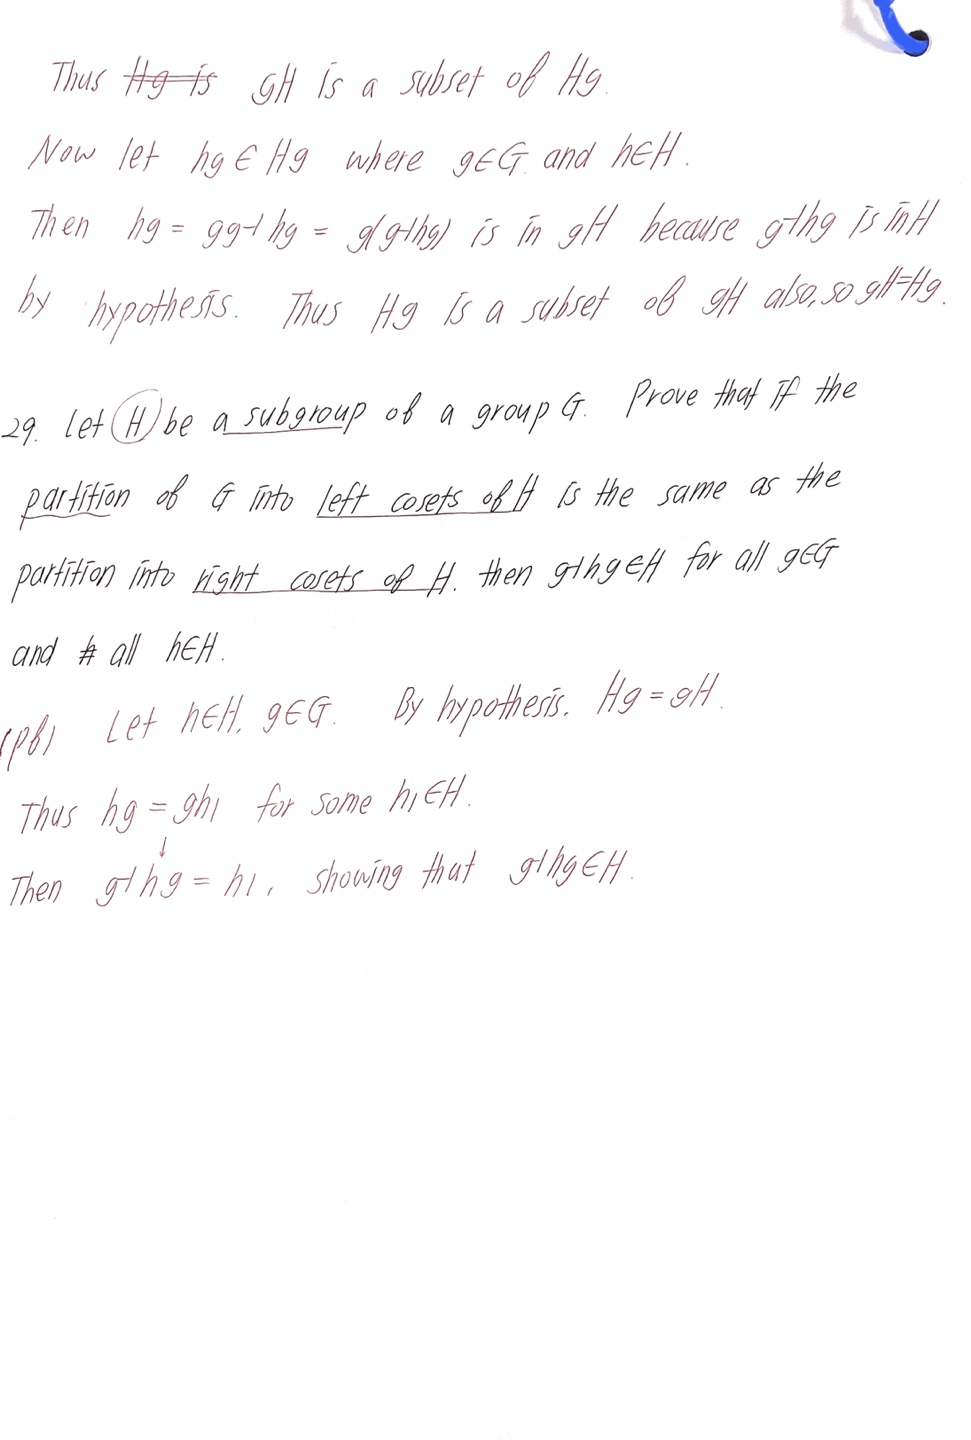 Thus ~~Hg is~~ gH is a subset of Hg.
Now let hg∈Hg where g∈G and h∈H.
Then hg = gg-1hg = g(g-1hg) is in gH because g-1hg is in H
by hypothesis. Thus Hg is a subset of gH also, so gH=Hg.
29. Let H be a subgroup of a group G. Prove that if the
partition of G into left cosets of H is the same as the
partition into right cosets of H, then g-1hg∈H for all g∈G
and all h∈H.
(pf) Let h∈H, g∈G. By hypothesis, Hg=gH.
Thus hg = gh1 for some h1∈H.
↓
Then g-1hg = h1, showing that g-1hg∈H.